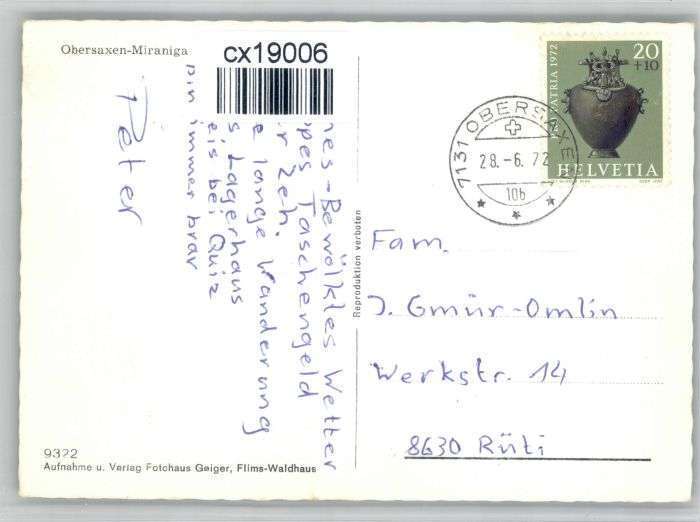 Obersaxen-Miraniga
cx19006
nes-Bewölktes Wetter
pes Taschengeld
r Zeh.
e lange Wanderung
s, Lagerhaus
eis bei Quiz
bin immer brav
Peter
Reproduktion verboten
PRO PATRIA 1972
20
+10
HELVETIA
7131 OBERSAXEN
28.-6.72
10b
Fam.
J. Gmür-Omlin
Werkstr. 14
8630 Rüti
9322
Aufnahme u. Verlag Fotohaus Geiger, Flims-Waldhaus